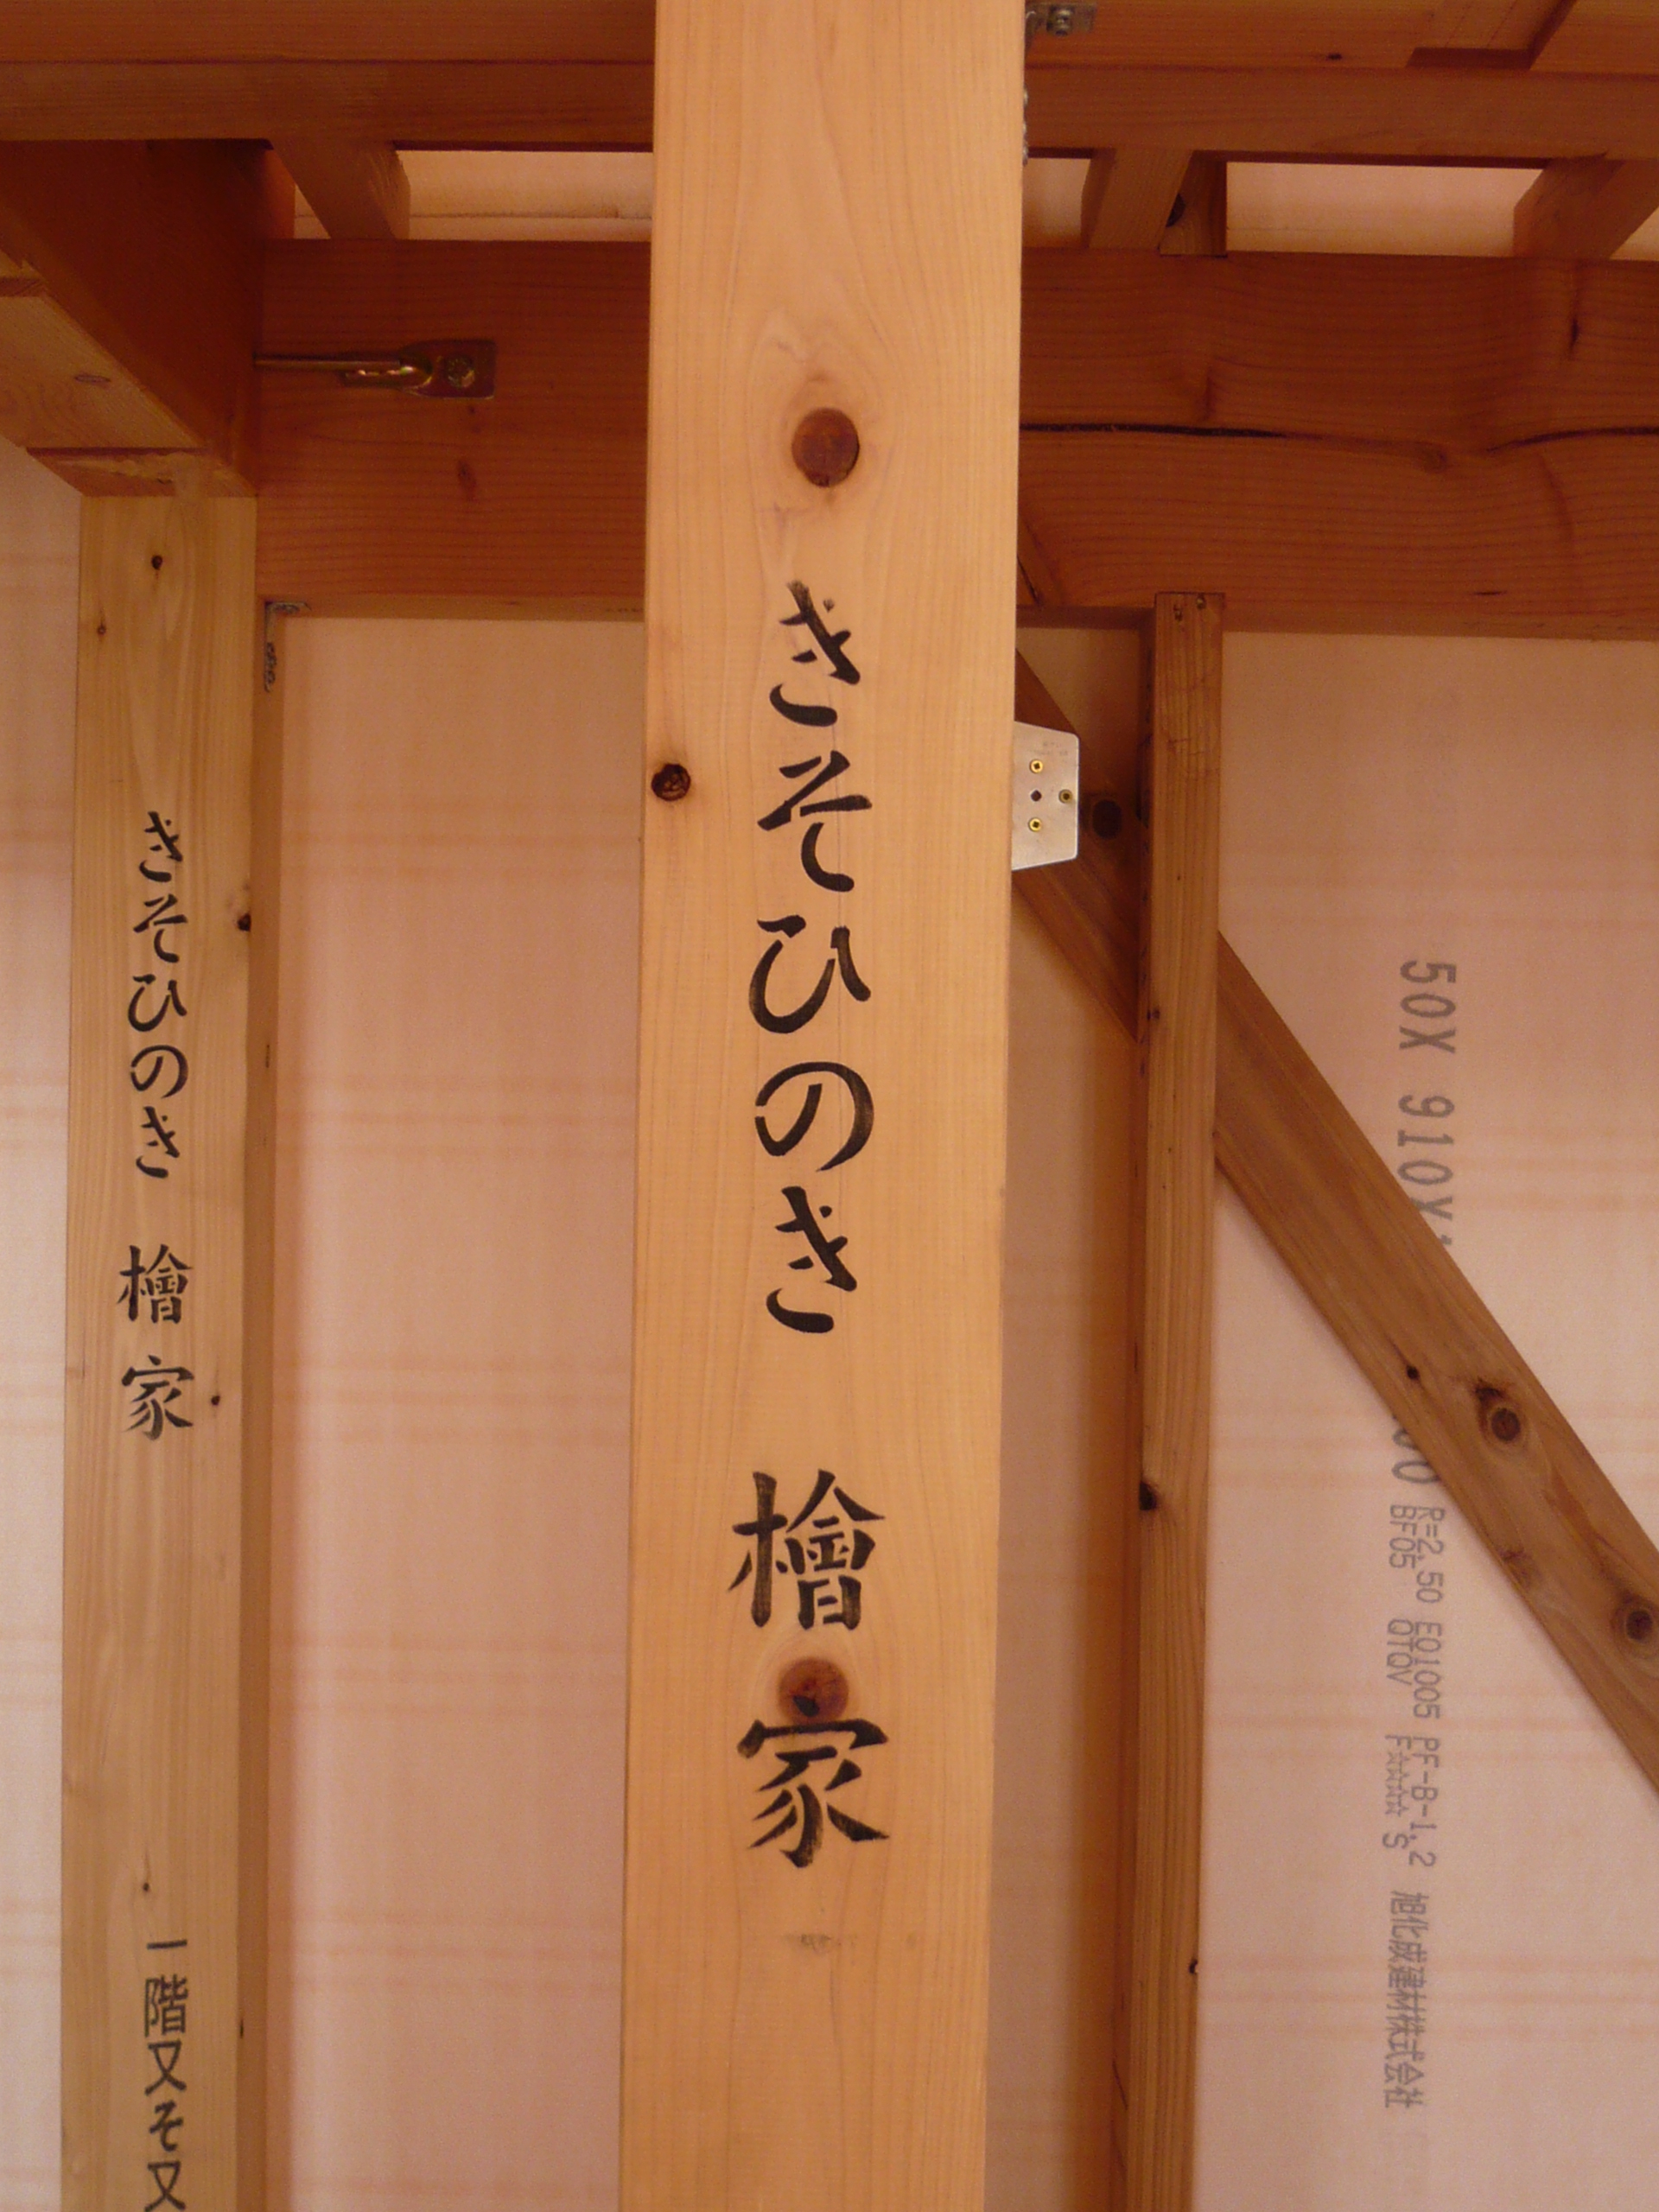 きそひのき 檜家
きそひのき 檜家
一階又そ又
50X 910X
00
R=2.50 E01005 PF-B-1.2 旭化成建材株式会社
BF05 QTQV F☆☆☆☆ S